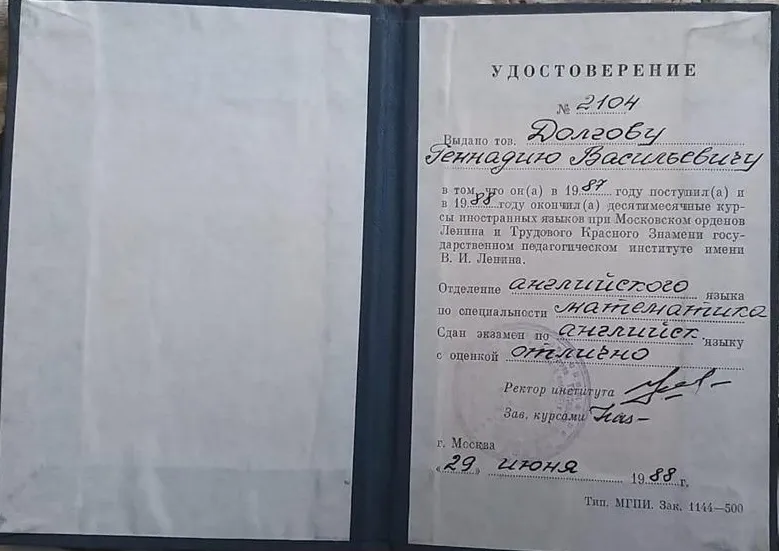 УДОСТОВЕРЕНИЕ
№ 2104
Выдано тов. Долгову
Геннадию Васильевичу
в том, что он(а) в 1987 году поступил(а) и
в 1988 году окончил(а) десятимесячные кур-
сы иностранных языков при Московском орденов
Ленина и Трудового Красного Знамени госу-
дарственном педагогическом институте имени
В. И. Ленина.
Отделение английского языка
по специальности математика
Сдан экзамен по английск языку
с оценкой отлично
Ректор института
Зав. курсами
г. Москва
«29» июня 1988 г.
Тип. МГПИ. Зак. 1144—500